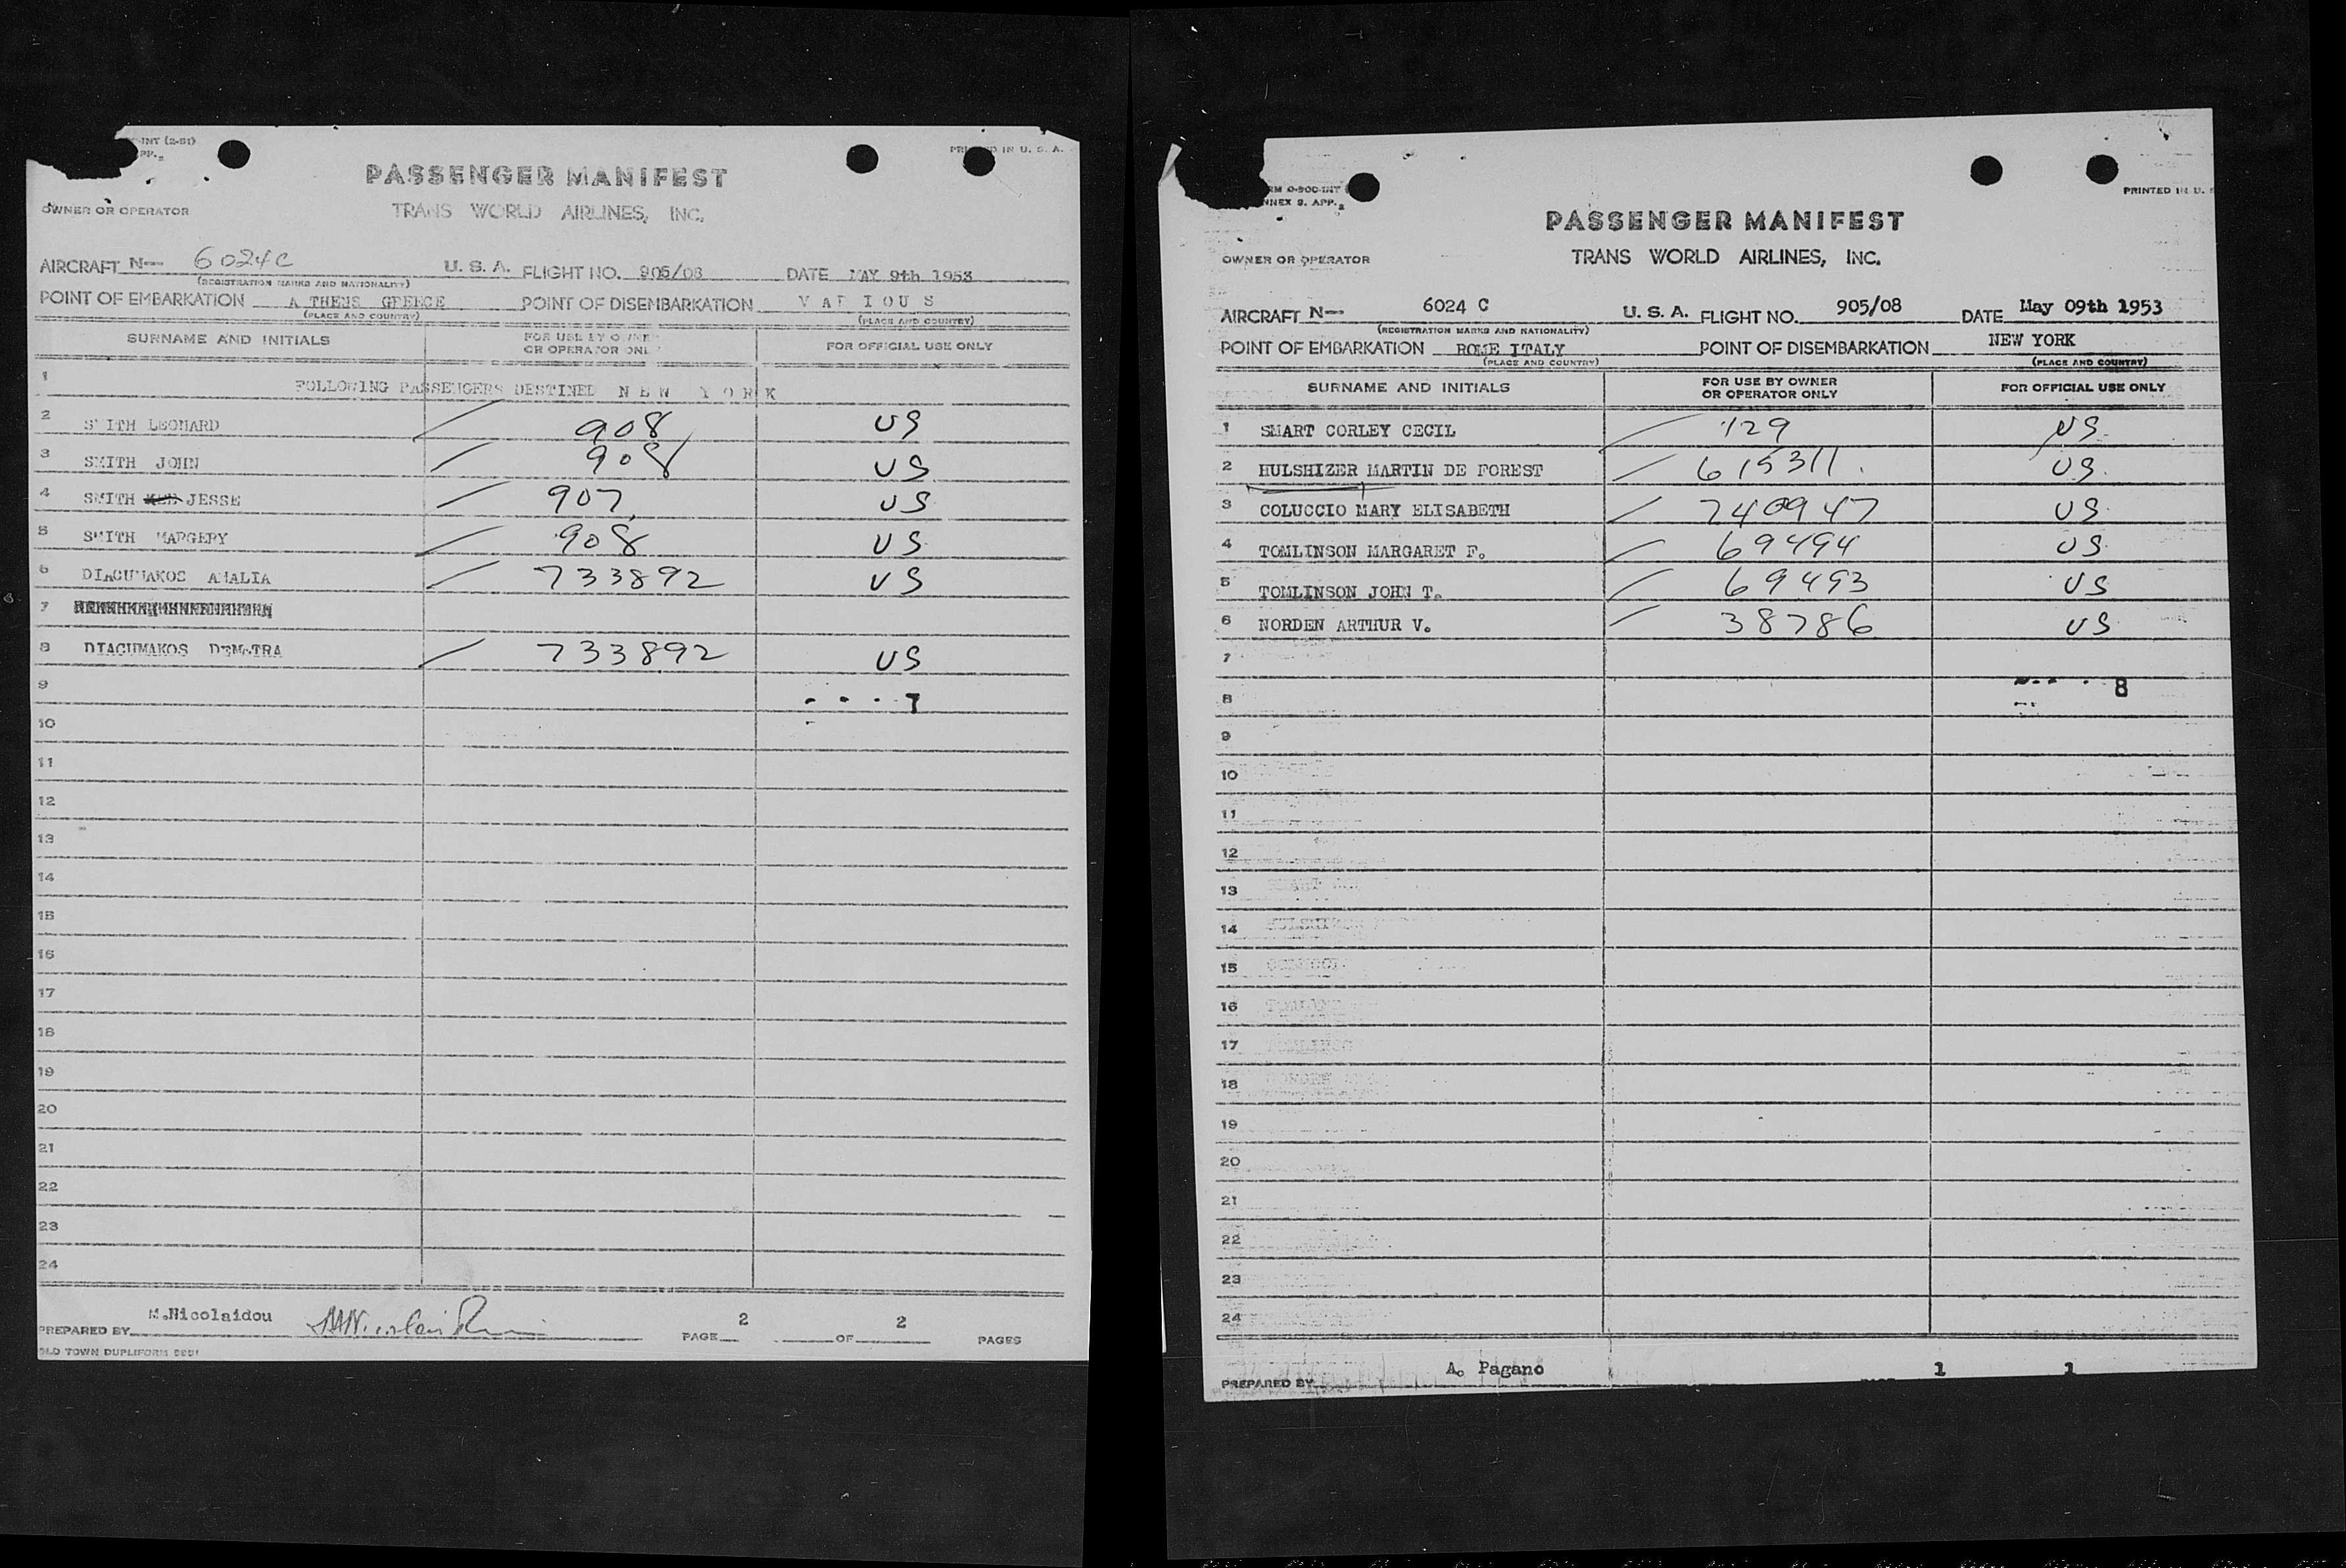 -INT (2-51)
PP.
PRINTED IN U. S. A.
PASSENGER MANIFEST
OWNER OR OPERATOR
TRANS WORLD AIRLINES, INC.
AIRCRAFT N— 6024C U. S. A. FLIGHT NO. 905/08 DATE MAY 9th 1953
(REGISTRATION MARKS AND NATIONALITY)
POINT OF EMBARKATION ATHENS GREECE POINT OF DISEMBARKATION VARIOUS
(PLACE AND COUNTRY) (PLACE AND COUNTRY)
SURNAME AND INITIALS FOR USE BY OWNER OR OPERATOR ONLY FOR OFFICIAL USE ONLY
1 FOLLOWING PASSENGERS DESTINED NEW YORK
2 SMITH LEONARD 908 US
3 SMITH JOHN 908 US
4 SMITH JESSE 907 US
5 SMITH MARGERY 908 US
6 DIACUMAKOS AMALIA 733892 US
7
8 DIACUMAKOS DEMETRA 733892 US
9 7
10
11
12
13
14
15
16
17
18
19
20
21
22
23
24
M.Nicolaidou
PREPARED BY PAGE 2 OF 2 PAGES
OLD TOWN DUPLIFORM
RM O-900-INT
NNEX 9. APP. 2
PRINTED IN U. S
PASSENGER MANIFEST
OWNER OR OPERATOR
TRANS WORLD AIRLINES, INC.
AIRCRAFT N— 6024 C U. S. A. FLIGHT NO. 905/08 DATE May 09th 1953
(REGISTRATION MARKS AND NATIONALITY)
POINT OF EMBARKATION ROME ITALY POINT OF DISEMBARKATION NEW YORK
(PLACE AND COUNTRY) (PLACE AND COUNTRY)
SURNAME AND INITIALS FOR USE BY OWNER OR OPERATOR ONLY FOR OFFICIAL USE ONLY
1 SMART CORLEY CECIL 129 US
2 HULSHIZER MARTIN DE FOREST 615311 US
3 COLUCCIO MARY ELISABETH 740947 US
4 TOMLINSON MARGARET F. 69494 US
5 TOMLINSON JOHN T. 69493 US
6 NORDEN ARTHUR V. 38786 US
7
8 8
9
10
11
12
13
14
15
16
17
18
19
20
21
22
23
24
PREPARED BY A. Pagano 1 1